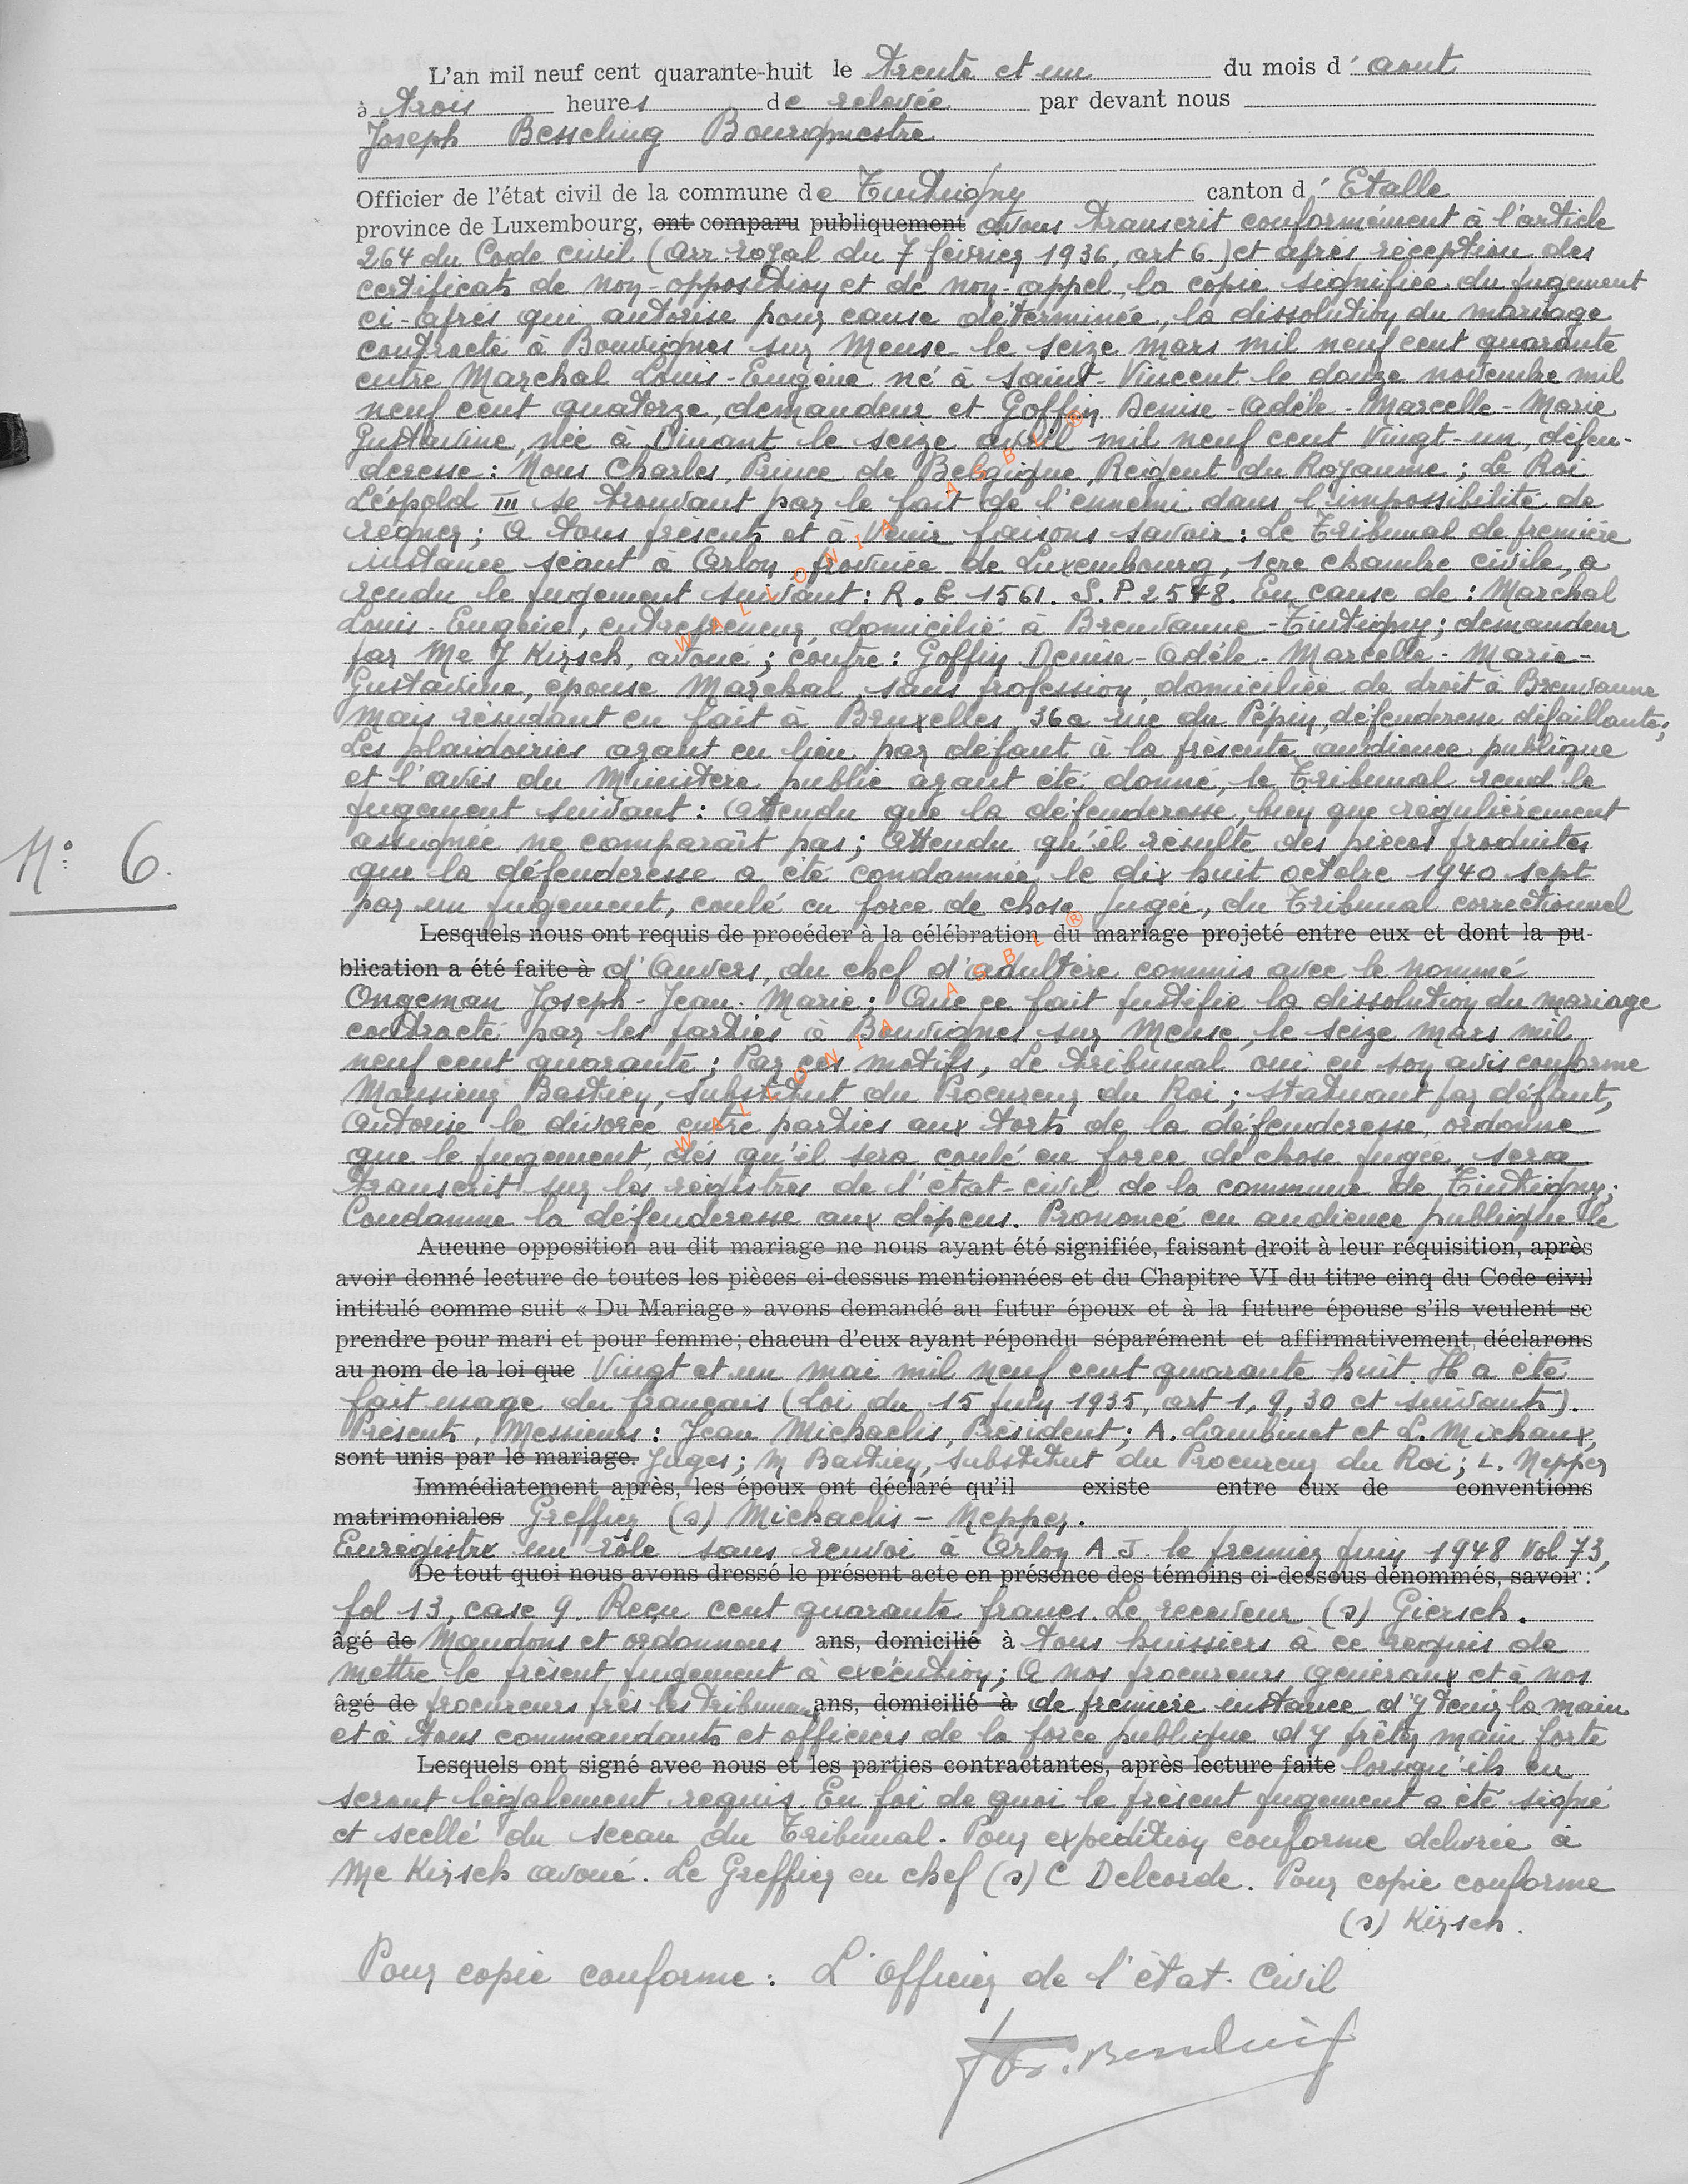 L'an mil neuf cent quarante-huit le trente et un du mois d'aout
à trois heures de relevée par devant nous
Joseph Besseling Bourgmestre
Officier de l'état civil de la commune de Tintigny canton d'Etalle
province de Luxembourg, ont comparu publiquement avons transcrit conformément à l'article
264 du Code civil (arr. royal du 7 février 1936, art 6.) et après réception des
certificats de non-opposition et de non-appel, la copie signifiée du jugement
ci-après qui autorise pour cause déterminée, la dissolution du mariage
contracté à Bouvignes sur Meuse le seize mars mil neuf cent quarante
entre Marchal Louis-Eugène né à Saint-Vincent le douze novembre mil
neuf cent quatorze, demandeur et Goffin Denise-Adèle-Marcelle-Marie
Gustavine, née à Dinant le seize avril mil neuf cent vingt-un, défen-
deresse : Nous Charles, Prince de Belgique, Régent du Royaume ; Le Roi
Léopold III se trouvant par le fait de l'ennemi dans l'impossibilité de
régner ; A tous présents et à venir faisons savoir : Le Tribunal de première
instance séant à Arlon, province de Luxembourg, 1ere chambre civile, a
rendu le jugement suivant : R. G 1561. S. P 2548. En cause de : Marchal
Louis-Eugène, entrepreneur, domicilié à Breuvanne-Tintigny ; demandeur
par Me J Kirsch, avoué ; contre : Goffin Denise-Adèle-Marcelle-Marie-
Gustavine, épouse Marchal, sans profession, domiciliée de droit à Breuvanne
mais résidant en fait à Bruxelles, 36a rue du Pépin, défenderesse défaillante ;
Les plaidoiries ayant eu lieu par défaut à la présente audience publique
et l'avis du Ministère public ayant été donné, le Tribunal rend le
jugement suivant : Attendu que la défenderesse, bien que régulièrement
assignée ne comparaît pas ; Attendu qu'il résulte des pièces produites
que la défenderesse a été condamnée le dix huit octobre 1940 sept
par un jugement, coulé en force de chose jugée, du Tribunal correctionnel
Lesquels nous ont requis de procéder à la célébration du mariage projeté entre eux et dont la pu-
blication a été faite à d'Anvers, du chef d'adultère commis avec le nommé
Ongeman Joseph-Jean-Marie ; Que ce fait justifie la dissolution du mariage
contracté par les parties à Bouvignes sur Meuse, le seize mars mil
neuf cent quarante ; Par ces motifs, Le tribunal oui en son avis conforme
Monsieur Bastien, substitut du Procureur du Roi ; statuant par défaut,
Autorise le divorce entre parties aux torts de la défenderesse, ordonne
que le jugement, dès qu'il sera coulé en force de chose jugée, sera
transcrit sur les registres de l'état-civil de la commune de Tintigny ;
Condamne la défenderesse aux dépens. Prononcé en audience publique le
Aucune opposition au dit mariage ne nous ayant été signifiée, faisant droit à leur réquisition, après
avoir donné lecture de toutes les pièces ci-dessus mentionnées et du Chapitre VI du titre cinq du Code civil
intitulé comme suit « Du Mariage » avons demandé au futur époux et à la future épouse s'ils veulent se
prendre pour mari et pour femme ; chacun d'eux ayant répondu séparément et affirmativement, déclarons
au nom de la loi que Vingt et un mai mil neuf cent quarante huit. Il a été
fait usage du français (Loi du 15 juin 1935, art 1, 9, 30 et suivants).
Présents, Messieurs : Jean Michaelis, Président ; A. Lambinet et L. Michaux,
sont unis par le mariage. Juges ; M Bastien, substitut du Procureur du Roi ; L. Nepper
Immédiatement après, les époux ont déclaré qu'il existe entre eux de conventions
matrimoniales Greffier (s) Michaelis - Nepper.
Enregistré un rôle sans renvoi à Arlon A J. le premier juin 1948 Vol 73,
De tout quoi nous avons dressé le présent acte en présence des témoins ci-dessous dénommés, savoir :
fol 13, case 9. Reçu cent quarante francs. Le receveur (s) Giersch.
âgé de Mandons et ordonnons ans, domicilié à tous huissiers à ce requis de
mettre le présent jugement à exécution ; A nos procureurs généraux et à nos
âgé de procureurs près les tribunaux ans, domicilié à de première instance d'y tenir la main
et à tous commandants et officiers de la force publique d'y prêter main forte
Lesquels ont signé avec nous et les parties contractantes, après lecture faite lorsqu'ils en
seront légalement requis. En foi de quoi le présent jugement a été signé
et scellé du sceau du Tribunal. Pour expédition conforme délivrée à
Me Kirsch avoué. Le Greffier en chef (s) C Delcorde. Pour copie conforme
(s) Kirsch.
Pour copie conforme : L'Officier de l'état-Civil
N° 6.
WALLONIA ASBL ®
WALLONIA ASBL ®